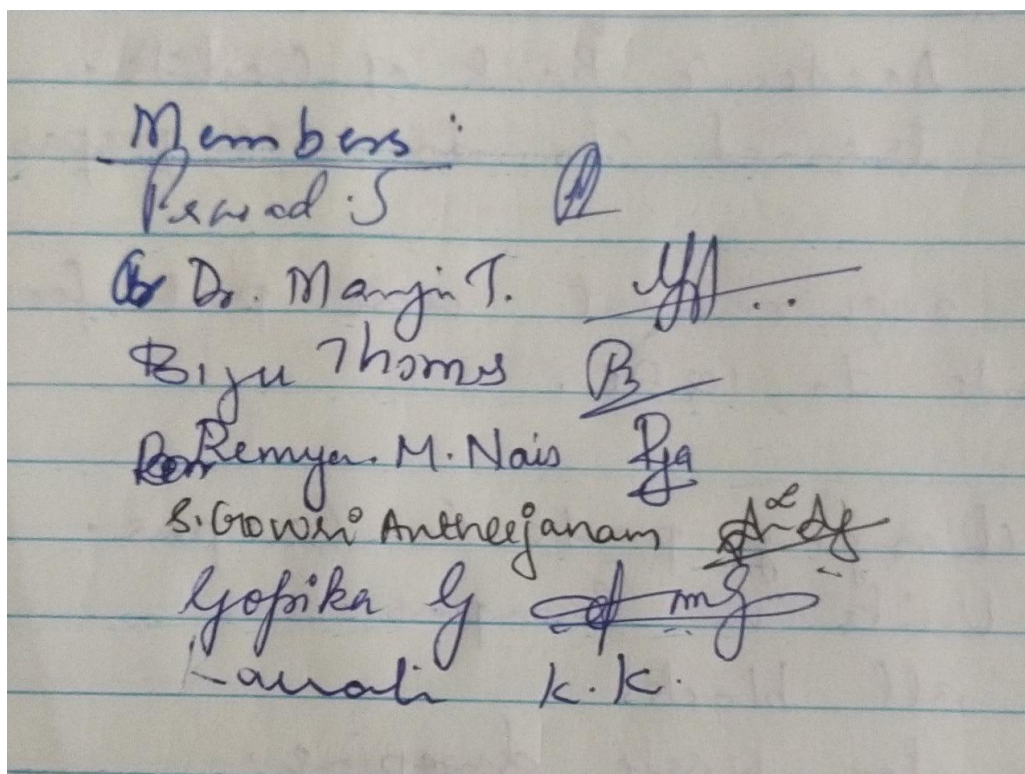 Members :
Dr. Manju T.
Biju Thomas
Remya. M. Nair
S. Gowri Antherjanam
Gopika G
K. K.